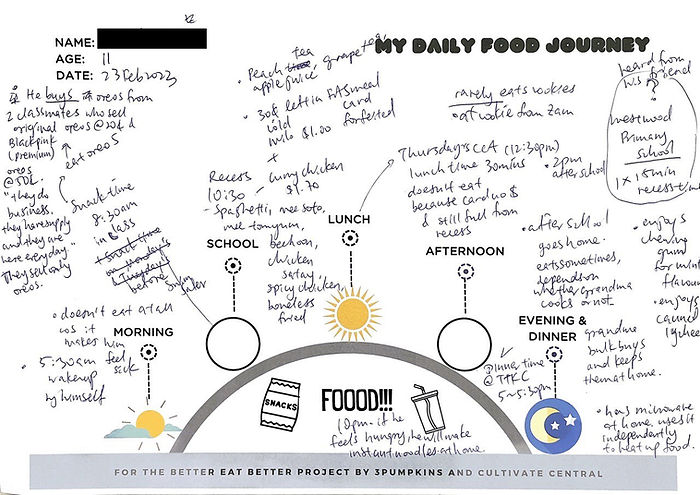 MY DAILY FOOD JOURNEY
NAME:
AGE: 11
DATE: 23 Feb 2023
He buys oreos from
2 classmates who sell
original oreos @ 20¢ &
Blackpink
(premium)
oreos
@ 50¢.
"They do
business,
they have supply
and they are
here everyday."
They sell only
oreos.
eat oreos
Snack time
8:30am
in class
before
Peach tea, grape tea,
apple juice
30¢ left in FAS meal
card
would
forfeited
$1.00
+
Recess
10:30 - curry chicken
$1.70
- Spaghetti, mee soto,
mee tom yum,
beehoon,
chicken
satay,
spicy chicken,
boneless
fried
rarely eats cookies
at cookie from Zam
Thursday's CCA (12:30pm)
lunch time 30mins
doesn't eat
because card no $
& still full from
recess
2pm
after school
heard from
his friend
?
westwood
Primary
school
1 x 15min
recess time
SCHOOL
LUNCH
AFTERNOON
after school
goes home.
eats sometimes,
depends on
whether grandma
cooks or not
enjoys
chewing
gum
for mint
flavour
enjoys
canned
lychee
MORNING
doesn't eat at all
cos it
makes him
feel
sick
5:30am
wakeup
by himself
EVENING &
DINNER
@ TTKC
5~5:30pm
grandma
bulk buys
and keeps
them at home.
has microwave
at home, uses it
independently
to heat up food.
SNACKS
FOOOD!!!
10pm - if he
feels hungry, he will make
instant noodles at home.
FOR THE BETTER EAT BETTER PROJECT BY 3PUMPKINS AND CULTIVATE CENTRAL